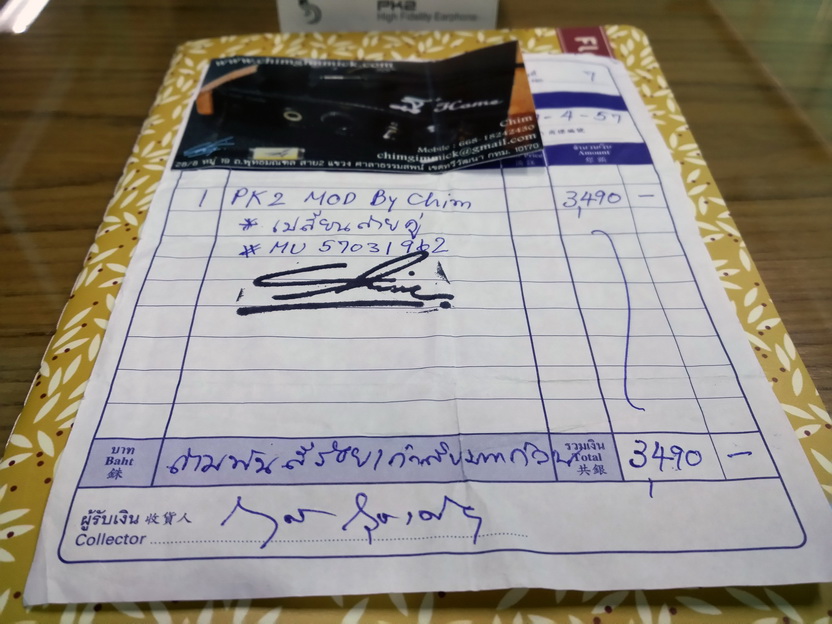 PK2
High Fidelity Earphone.
FU
www.chimgimmick.com
Home
Chim
Mobile : 668-18242450
chimgimmick@gmail.com
28/8 หมู่ 19 ถ.พุทธมณฑล สาย2 แขวง ศาลาธรรมสพน์ เขตทวีวัฒนา กทม. 10170
-4-57
จำนวนเงิน
Amount
1 PK2 MOD By Chim 3490 -
* เปลี่ยนสายคู่
* MU 57031912
บาท
Baht
銖
สามพันสี่ร้อยเก้าสิบบาทถ้วน
รวมเงิน
Total
共銀
3490 -
ผู้รับเงิน 收貨人
Collector